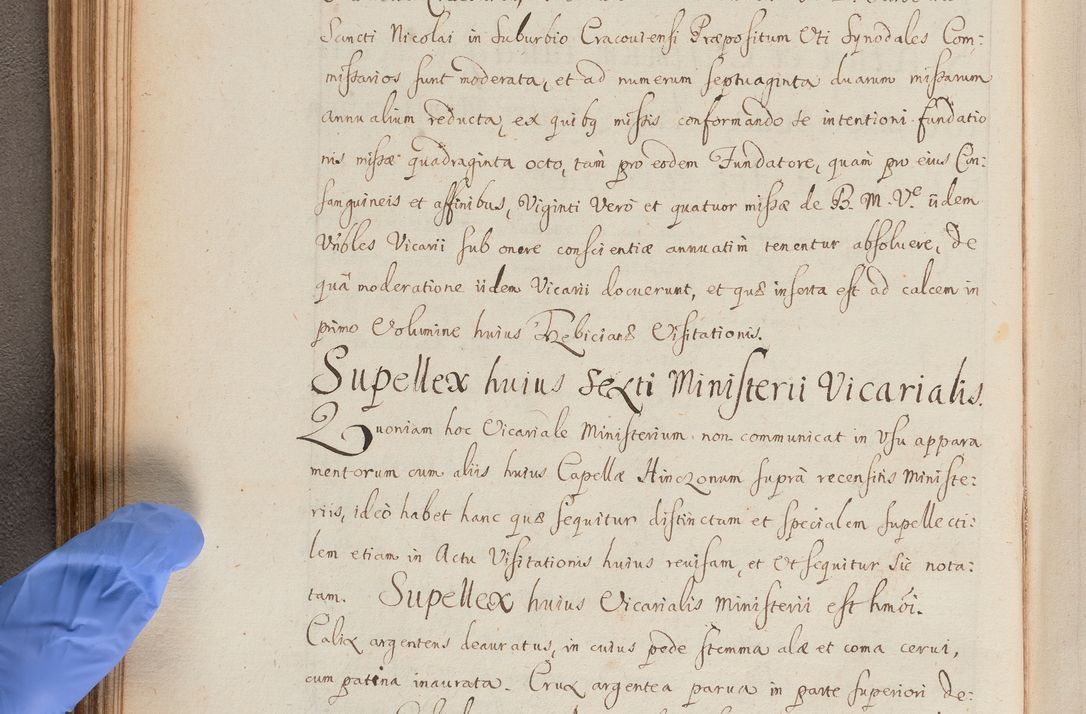 Sancti Nicolai in Suburbio Cracoviensi Præpositum Uti Synodales Com:
missarios sunt moderata, et ad numerum septuaginta duarum missarum
annualium reducta, ex quibg missis conformando se intentioni fundatio
nis missæ quadraginta octo, tam̀ pro eodem Fundatore, quam̀ pro eius Con:
sanguineis et affinibus, Viginti Verò et quatuor missæ de B. M. V.e iidem
Vñbles Vicarii sub onere conscientiæ annuatim̀ tenentur absoluere, De
quâ moderatione iidem Vicarii docuerunt, et quæ inserta est ad calcem in
primo Volumine huius Trzebicianæ Visitationis.
Supellex huius Sexti Ministerii Vicarialis.
Quoniam hoc Vicariale Ministerium non communicat in Usu appara
mentorum cum aliis huius Capellæ Hinczonum suprà recensitis Ministe:
riis, ideò habet hanc quæ sequitur distinctum et specialem supellecti:
lem etiam in Actu Visitationis huius reuisam, et Ut sequitur Sic nota:
tam. Supellex huius Vicarialis Ministerii est hm̃õi.
Calix argenteus deauratus, in cuius pede stemma alæ et coma cerui,
cum patina inaurata. Crux argentea parua in parte superiori de: